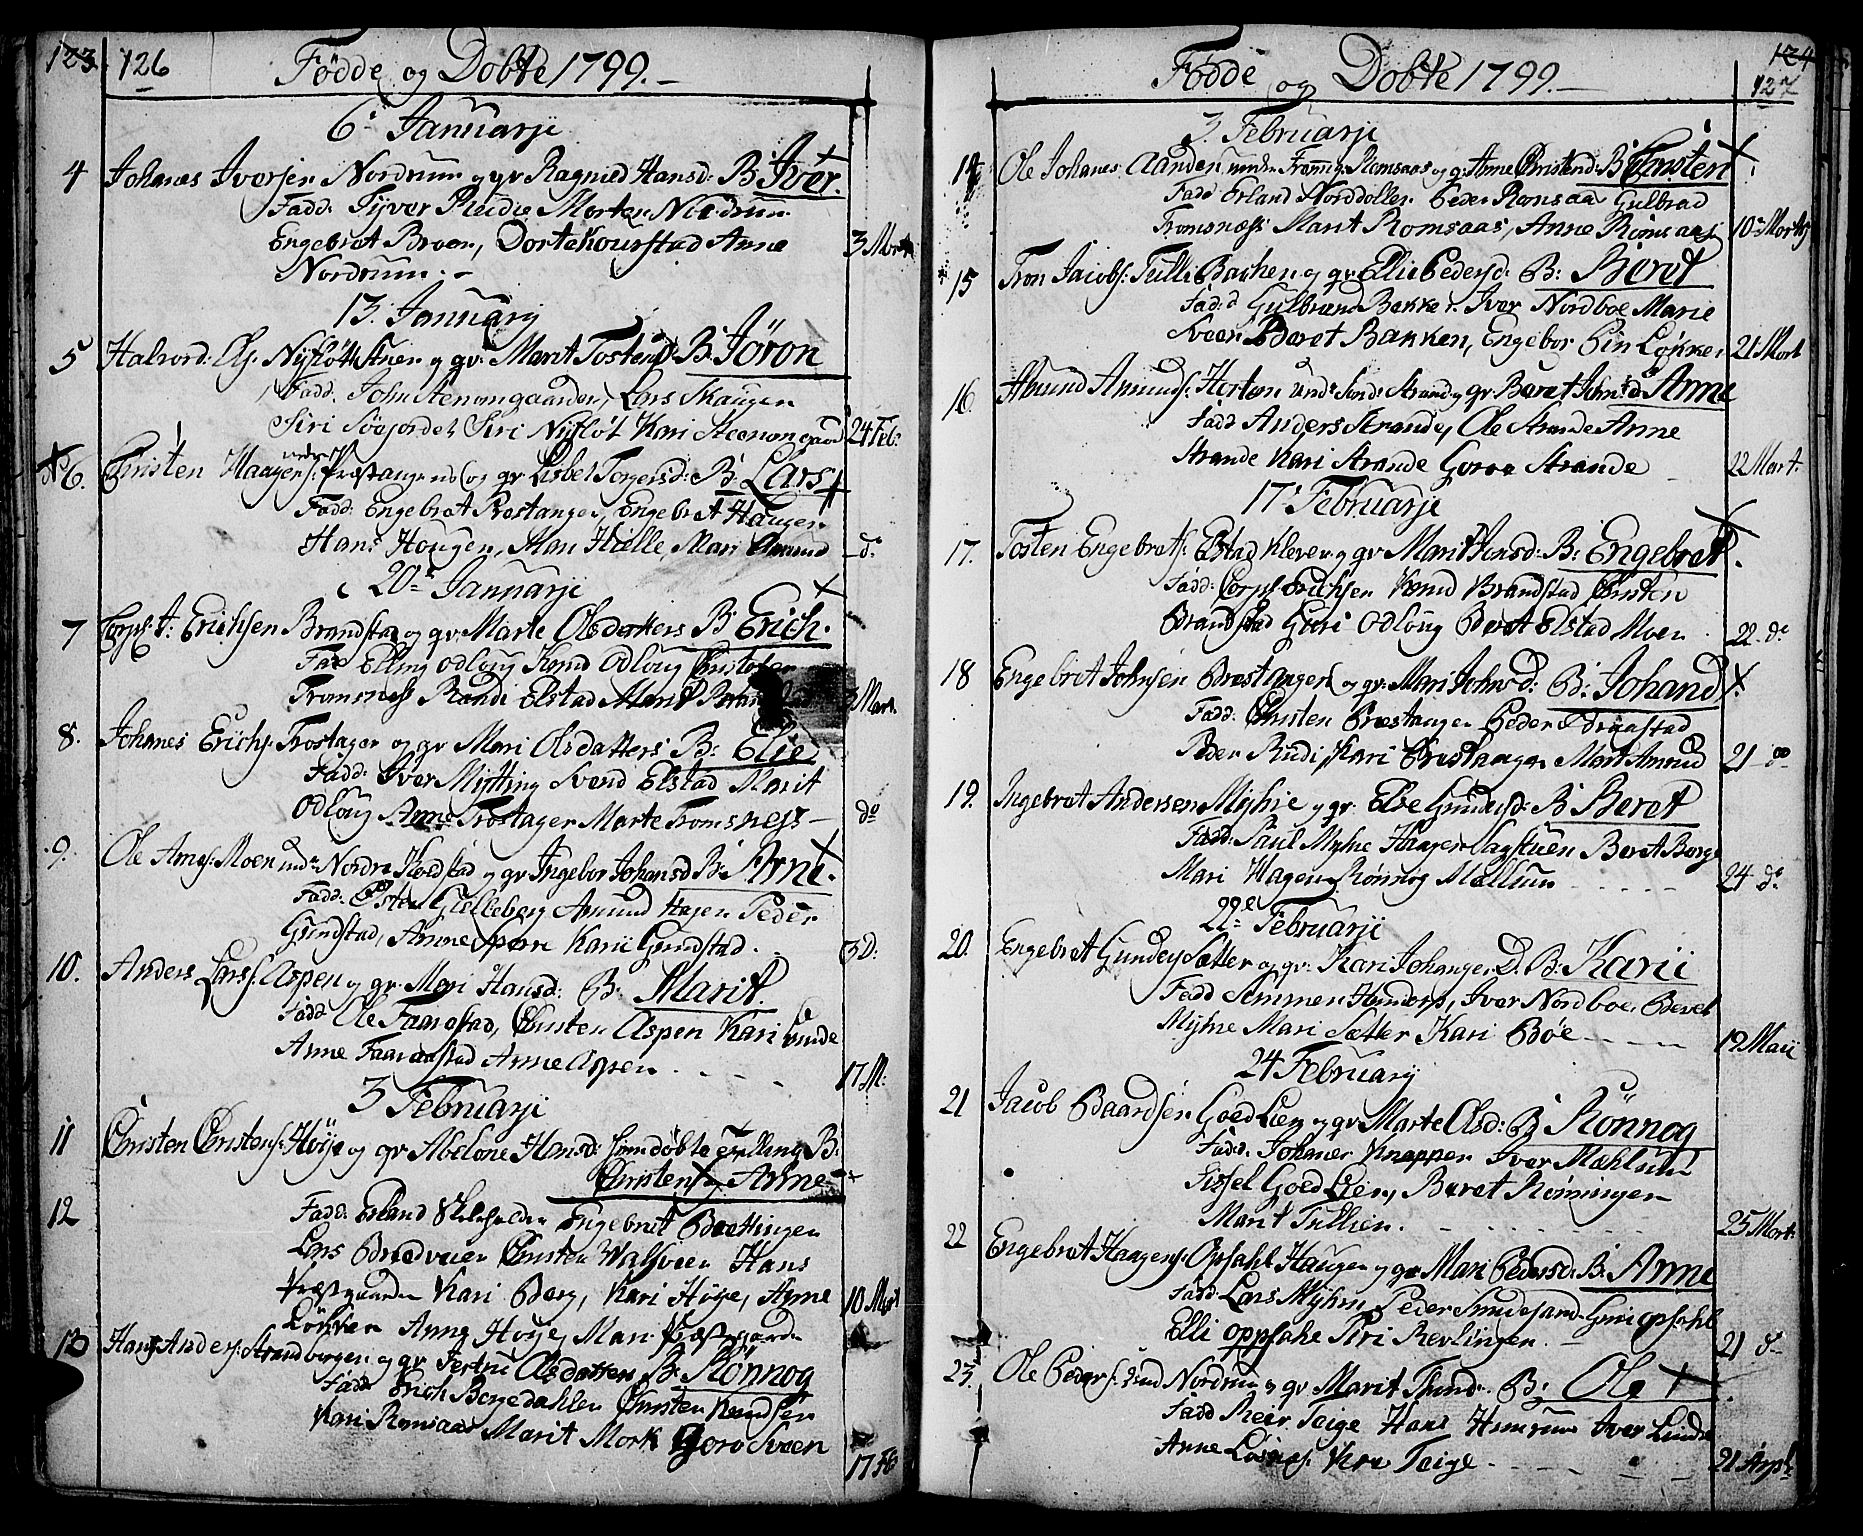 123. 126
Fødde og Døbte 1799.
6te Januarii
4 Johanes Iversen Nordrum og qv Ragnild Hansd: B. Iver.
Fadd: Syver Rudie Morten Nordrum
Engebret Broen, Dorte Kourstad Anne 3 Mort
Nordrum.
13. January
5 Halvord Ols. Nyfløt Stuen og qv: Marit Tostensd: B. Jöron
Fadd: John Stenumgaarden, Lars Skaugen
Siri Söejordet Siri Nyfløt Kari Steenumgaard 24 Feb:
No 6. Christen Haagens: Præstangen og qv Lisbet Torgersd: B: Lars
Fadd: Engebret Prestangen, Engebret Haugen
Hans Hougen, Mari Hielle, Mari Amund do
20de Januarii
7 Corpl: J: Erichsen Brandstad og qv: Marte Olsdatters B: Erich.
Fad Elling Odloug Knud Odloug Christofer
Tromsness Rande Elstad Marit Brandstad 3 Mart.
8. Johanes Erichs: Trostager og qv Mari Olsdatters B: Elie
Fadd: Iver Mytting Svend Elstad Marit
Odloug Anne Trostager Marte Tromsness do
9. Ole Arnes: Moen und: Nordre Koedstad og qv Ingebor Johansd B: Arne.
Fadd: Østen Gulleberg Amund Hagen Peder
Grindstad, Anne Kari Grindstad. 3 D:
10. Anders Lars: Aspen og qv Mari Hansd: B: Marit.
Fadd Ole Faarostad, Christen Aspen Kari Lunde
Anne Faarostad Anne Aspen 17 M:
3 Februarii
11 Christen Christens: Höye og qv Abelone Hansd: hiemdöbte tvilling B:
Christen og Anne
12 Fadd: Erland Engebret Brettingen
Lars Bredveien Christen Walsveen Hans
Præstgaarden Kari Berg, Kari Höye, Anne 10 Mart
Løkken Anne Höye, Mari Præstgaarden
13 Hans Anders: Strandbergen og qv Jertrü Olsdatters B: Rönnog
Fadd: Erich Bergedahlen Christen Knudsen
Kari Romsaas Marit Mork Goro Sveen 17 Feb
124
127
Fødde og Døbte 1799.
3 Februarii
14 Ole Johanes Aanden under Romsaas og qv: Anne Christensd: B: Christen
Fadd Erland Norddollen Peder Romsaa Gulbrad
Tromsness Marit Romsaas, Anne Romsaas 10 Martij
15 Tron Jacobs: Tulli Backen og qv Elli Pedersd: B: Beret
Fadd: Gulbrand Bekken Iver Nordboe Marie
Sveen Beret Bakken, Engebor Løkken 21 Mort
16. Amund Amunds: Horten und: Strand og qv Beret Johnsd Anne
Fadd Anders Strande, Ole Strande Anne
Strande Kari Strande Goroe Strande 22 Mart
17de Februarii
17. Tosten Engebrets: Elstad Kleven og qv Marit Jonsd: B: Engebret.
Fadd: Corpl Erichsen Knud Brandstad Christen
Brandstad Guri Odloug Beret Elstad Moen 22 do
18 Engebret Johnsen Brestangen og qv: Mari Johnsd: B: Johand
Fadd: Christen Præstangen Peder Draastad
Peder Rudi, Kari Prestangen Marit Amrud 21 do
19. Ingebret Andersen Myhre og qv: Elie Gundersd: B: Beret
Fadd: Paul Myhre Haagen Sagstuen Beret Berge
Mari Hagen Rönnog Mællum 24 do
22de Februarii
20. Engebret Gunders Sætter og qv: Kari Johanger D. B: Karii
Fadd Simmen Hundorp, Iver Nordboe Beret
Myhre Mari Sætter Kari Bøe 19 Marii
24 February
21 Jacob Baardsen Goed Lien og qv Marte Olsd: B: Rönnog
Fadd: Johanes Knappen Iver Mæhlum
Sissel Goed Lien, Beret Römingen
Marit Tullien. 25 Mart
22 Engebret Haagens: Opsahl Haugen og qv Mari Pedersd: B: Anne
Fadd: Lars Myhre Peder Sundesand Guri Opsahl
Elli Oppsahl Siri Revlingen 21 d
23. Ole Peders: und Nordrum og qv Marit B: Ole
Fadd Reier Teige Hans Hunrum Iver Lunde
Anne Losnes Kari Teige. 21 April